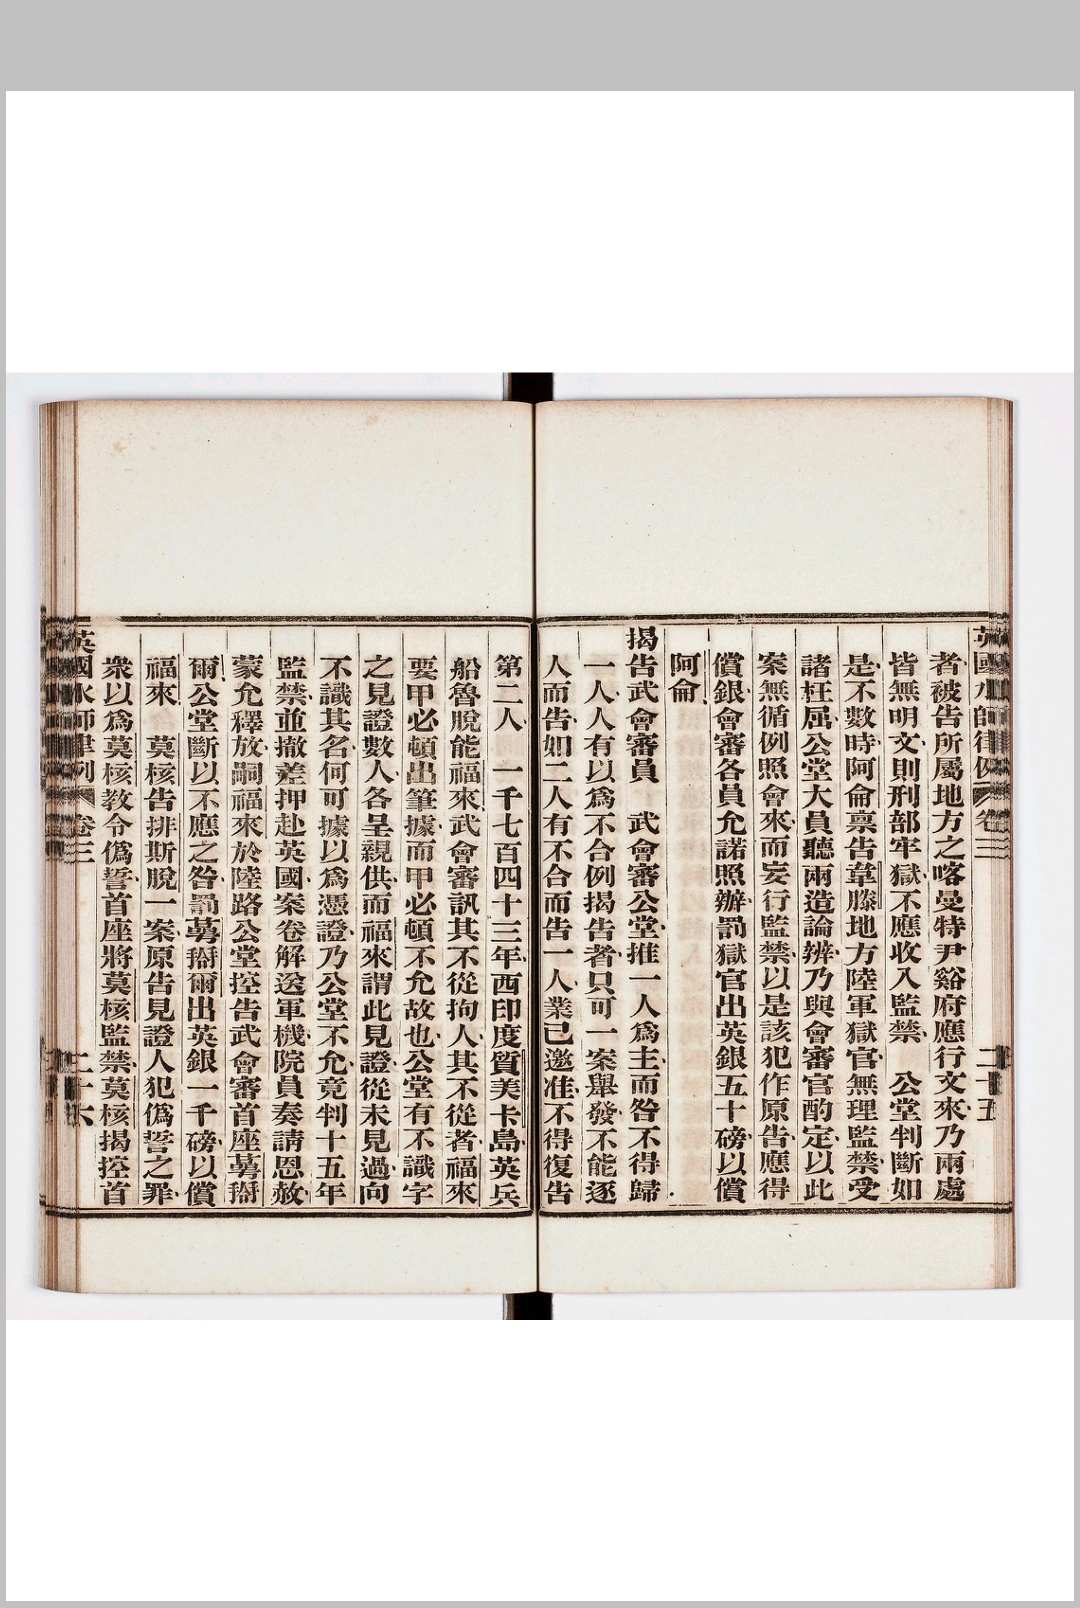 英國水師律例 卷三 二十五
者被告所屬地方之喀曼特尹谿府應行文來乃兩處
皆無明文則刑部牢獄不應收入監禁 公堂判斷如
是不數時阿侖稟告韋滕地方陸軍獄官無理監禁受
諸枉屈公堂大員聽兩造論辨乃與會審官酌定以此
案無循例照會來而妄行監禁以是該犯作原告應得
償銀會審各員允諾照辦罰獄官出英銀五十磅以償
阿侖
揭告武會審員 武會審公堂推一人爲主而咎不得歸
一人人有以爲不合例揭告者只可一案舉發不能逐
人而告如二人有不合而告一人業已邀准不得復告
第二人 一千七百四十三年西印度質美卡島英兵
船魯脫能福來武會審訊其不從拘人其不從者福來
要甲必頓出筆據而甲必頓不允故也公堂有不識字
之見證數人各呈親供而福來謂此見證從未見過向
不識其名何可據以爲憑證乃公堂不允竟判十五年
監禁並撤差押赴英國案卷解送軍機院員奏請恩赦
蒙允釋放嗣福來於陸路公堂控告武會審首座蒻搿
爾公堂斷以不應之咎罰蒻搿爾出英銀一千磅以償
福來 莫核告排斯脫一案原告見證人犯僞誓之罪
衆以爲莫核教令僞誓首座將莫核監禁莫核揭控首
英國水師律例 卷三 二十六